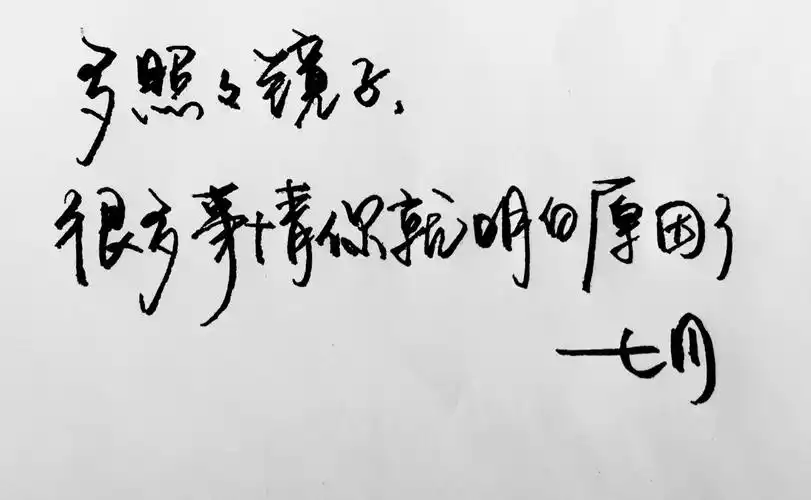 多照々镜子、
很多事情你就明白原因了
一七月